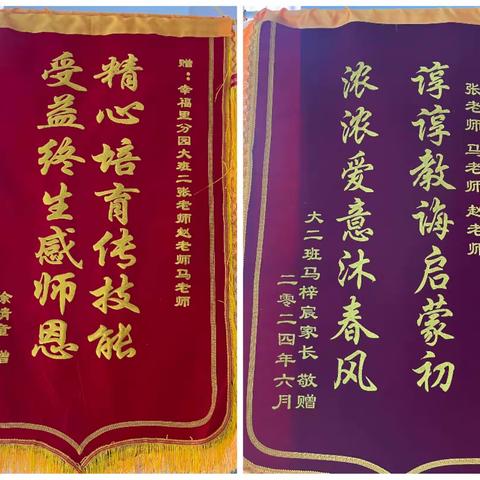 赠：幸福里分园大班二张老师赵老师马老师
精心培育传技能
受益终生感师恩
赠
张老师 马老师 赵老师
谆谆教诲启蒙初
浓浓爱意沐春风
大二班马梓宸家长 敬赠
二零二四年六月